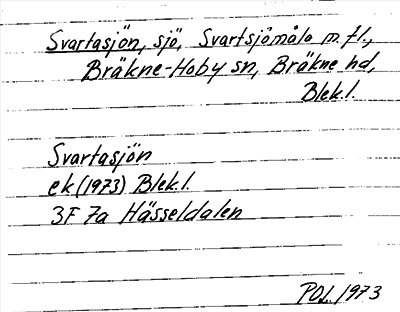 Svartasjön, sjö, Svartsjömåla m.fl.,
Bräkne-Hoby sn, Bräkne hd,
Blek.l.
Svartasjön
ek (1973) Blek.l.
3F 7a Hässeldalen
POL. 1973